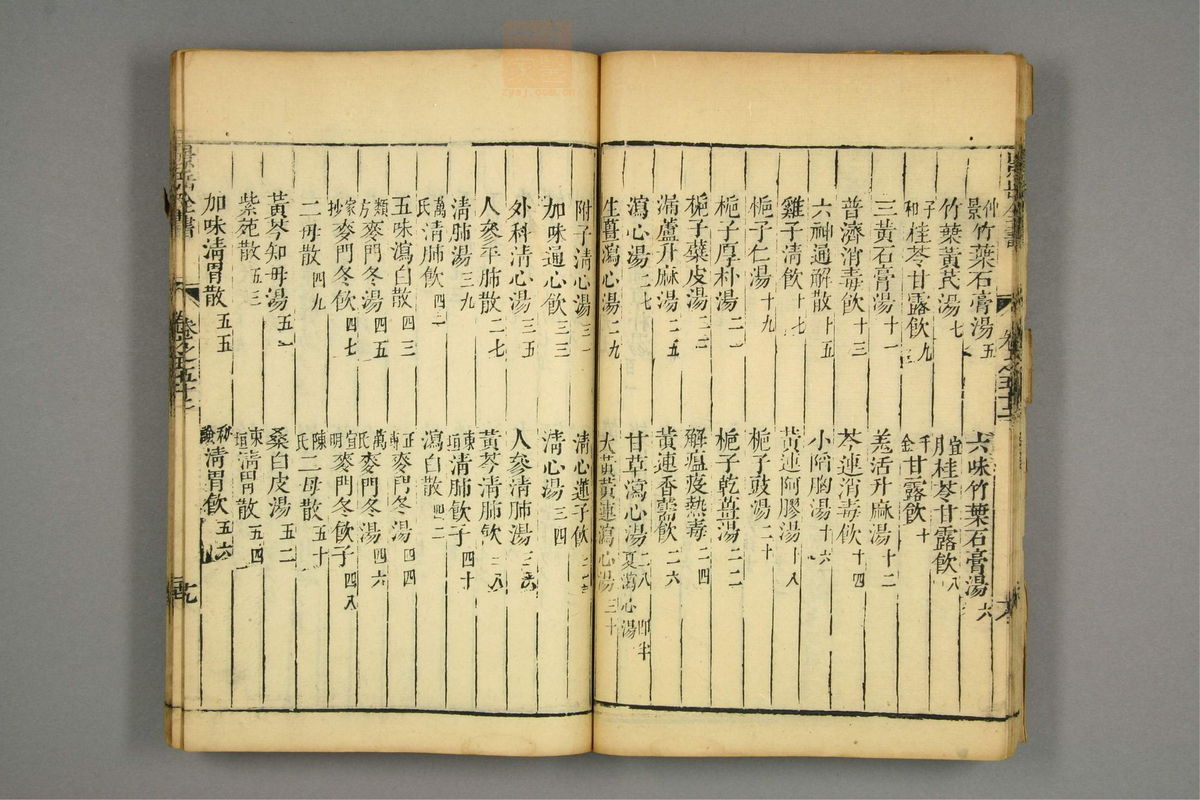 仲景竹葉石膏湯五　六味竹葉石膏湯六
竹葉黃芪湯七　宜明桂苓甘露飲八
子和桂苓甘露飲九　千金甘露飲十
三黃石膏湯十一　羌活升麻湯十二
普濟消毒飲十三　芩連消毒飲十四
六神通解散十五　小陷胸湯十六
雞子清飲十七　黃連阿膠湯十八
梔子仁湯十九　梔子豉湯二十
梔子厚朴湯二一　梔子乾薑湯二二
梔子蘗皮湯二三　解瘟疫熱毒二四
漏蘆升麻湯二五　黃連香薷飲二六
瀉心湯二七　甘草瀉心湯二八即半夏瀉心湯
生薑瀉心湯二九　大黃黃連瀉心湯三十
附子清心湯三一　清心蓮子飲
加味通心飲三三　清心湯三四
外科清心湯三五　人參清肺湯三六
人參平肺散三七　黃芩清肺飲三八
清肺湯三九　東垣清肺飲子四十
萬氏清肺飲四一　瀉白散四二
五味瀉白散四三　正傳麥門冬湯四四
類方麥門冬湯四五　萬氏麥門冬湯四六
家抄麥門冬飲四七　宜明麥門冬飲子四八
二母散四九　陳氏二母散五十
黃芩知母湯五一　桑白皮湯五二
紫菀散五三　東垣清胃散五四
加味清胃散五五　秘驗清胃飲五六
景岳全書　卷之五十三